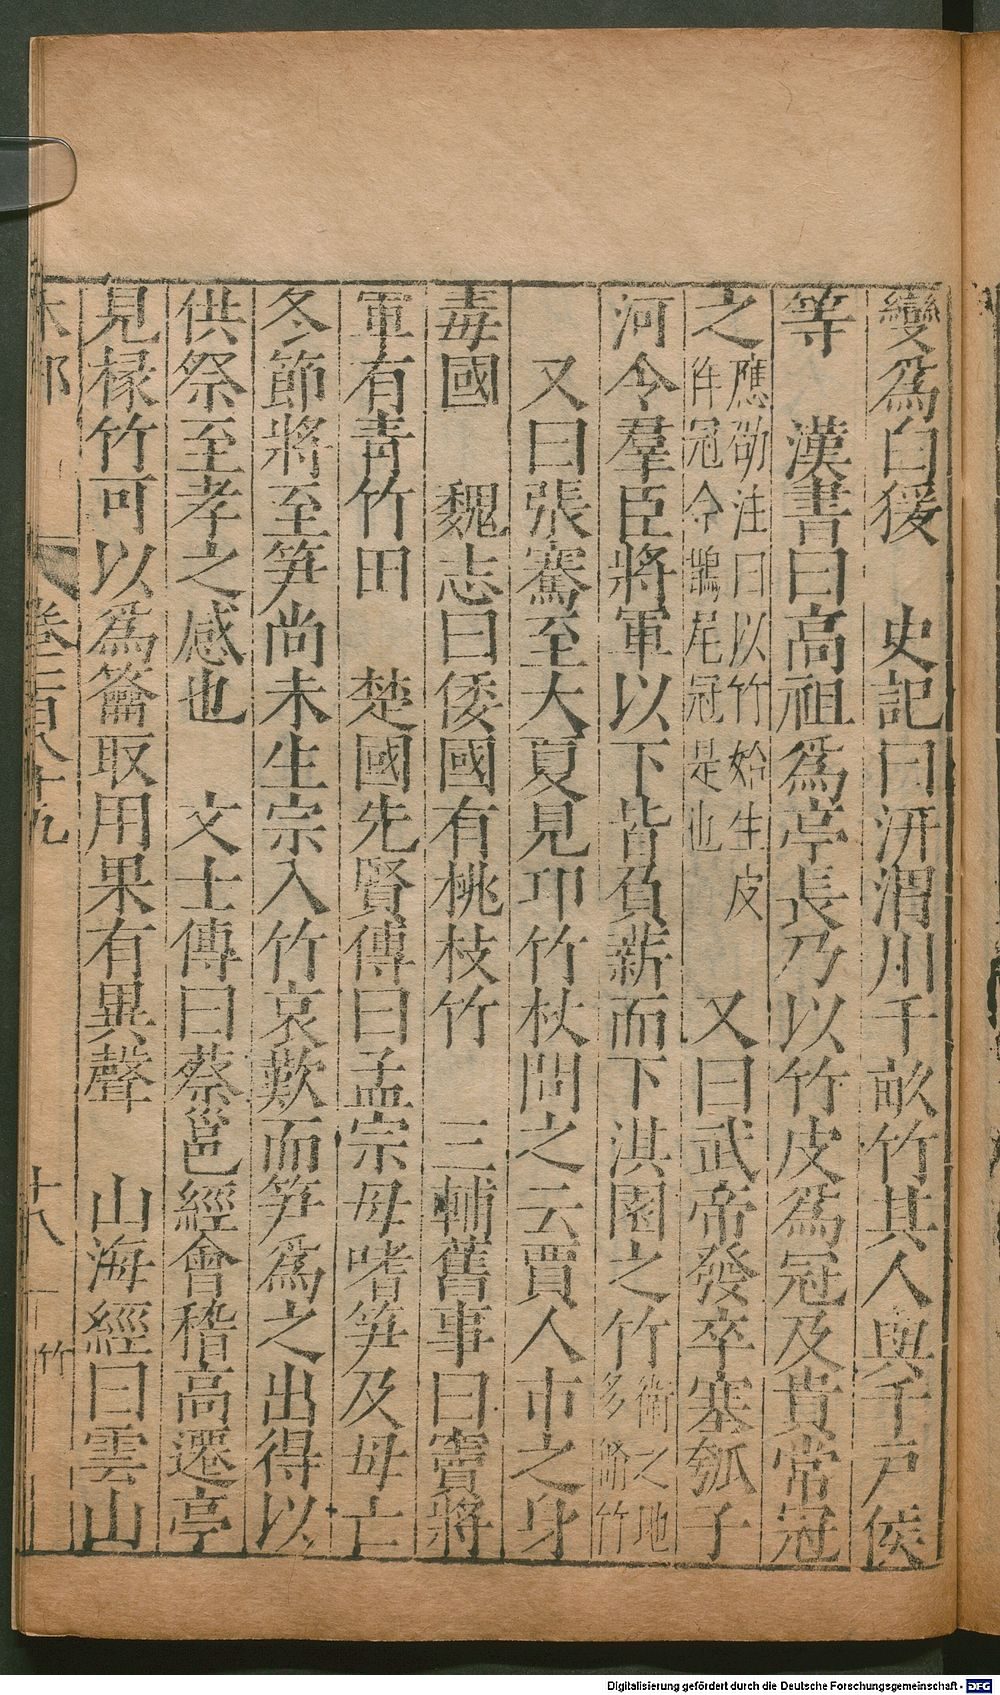 變爲白猨　史記曰汧渭川千畝竹其人與千戸侯
等　漢書曰高祖爲亭長乃以竹皮爲冠及貴常冠
之應劭注曰以竹始生皮
作冠今鵲尾冠是也　又曰武帝發卒塞瓠子
河令羣臣將軍以下皆負薪而下淇園之竹衛之地
多篠竹
又曰張騫至大夏見邛竹杖問之云賈人市之身
毒國　魏志曰倭國有桃枝竹　三輔舊事曰竇將
軍有青竹田　楚國先賢傳曰孟宗母嗜笋及母亡
冬節將至笋尚未生宗入竹哀歎而笋爲之出得以
供祭至孝之感也　文士傳曰蔡邕經會稽高遷亭
見椽竹可以爲籥取用果有異聲　山海經曰雲山
木部　卷二百八十九　十八　竹
Digitalisierung gefördert durch die Deutsche Forschungsgemeinschaft - DFG